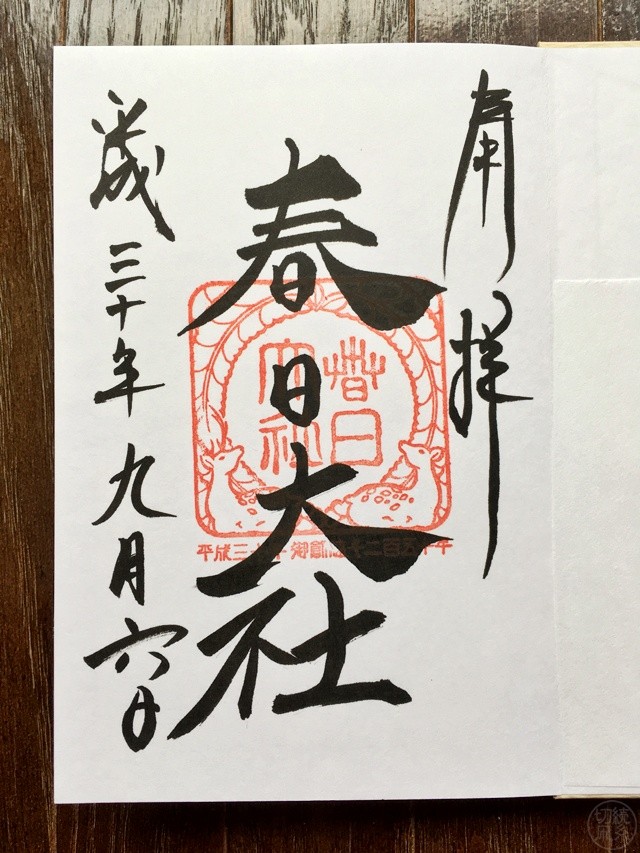 奉拝
春日大社
春日
大社
平成三十年御創建千二百五十年
平成三十年九月六日